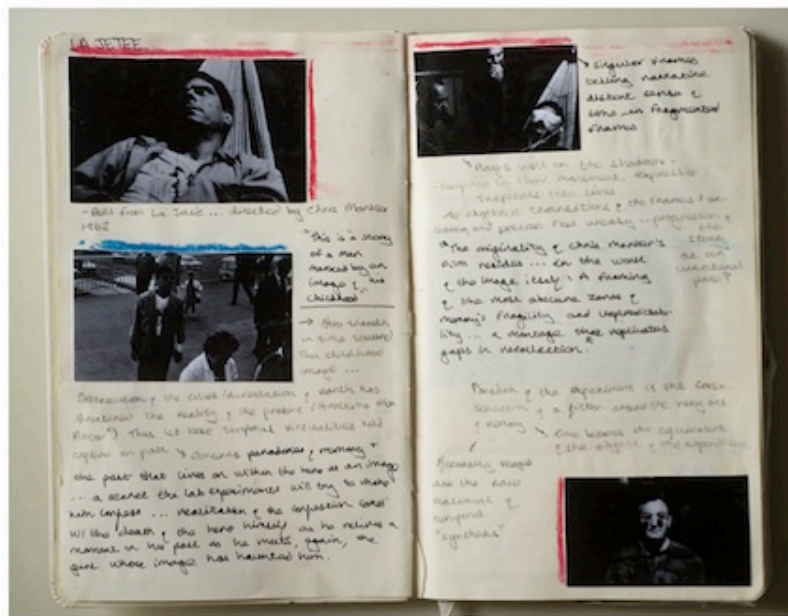 LA JETEE
- Still from La Jetée ... directed by Chris Marker
1962
"This is a story
of a man
marked by an
image of his
childhood
→ Also travels
in time toward
this childhood
image ...
of the of earth has
the reality of the present (Hiroshima Mon
Amour") Thus we lose temporal
in past → obscures paradoxes of memory +
the past that lives on within the hero as an image
... a secret the lab experiments will try to make
him confess ... realization of the confession comes
w/ the death of the hero himself as he relives a
moment in his past as he meets, again, the
girl whose image has haunted him.
singular frames
telling narrative
distinct sense of
time in fragmented
frames
Plays well on the shadows -
to show movement, expression
into
transitions of the frames
and feel uneasy .. progression of
the
story
at an
unnatural
pace?
"The originality of Chris Marker's
film resides ... in the work
of the image itself: A framing
of the most obscure zones of
memory's fragility and unpredictab-
ility ... a montage that replicates
gaps in recollection."
Paradox of the experiment is the con-
struction of a fiction around the very act
of memory → Time becomes the equivalent
of the object of the experiment.
images
are the raw
material of
temporal
"synthesis"